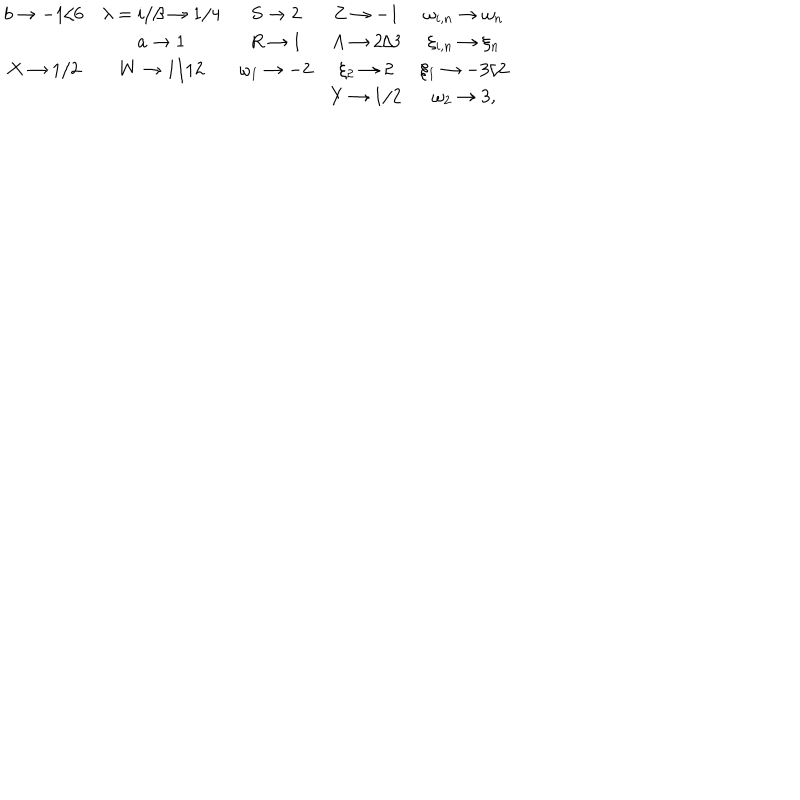 b → -1/6 λ = i/β → 1/4 S → 2 Z → -1 ω_{i,n} → ω_n
a → 1 R → 1 Λ → 2/3 ξ_{i,n} → ξ_n
X → 1/2 W → 1/12 ω_1 → -2 ξ_2 → 2 ξ_1 → -3/2
Y → 1/2 ω_2 → 3,